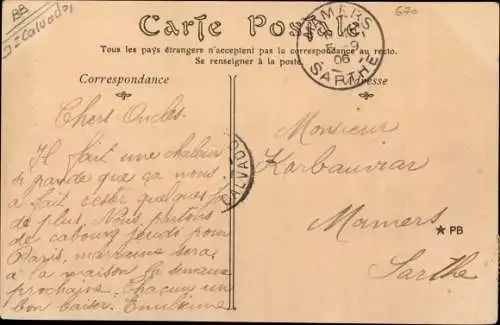 BB
= Calvados
670
Carte Postale
Tous les pays étrangers n'acceptent pas la correspondance au recto.
Se renseigner à la poste.
MAMERS
06
SARTHE
Correspondance
Adresse
CALVADOS
Chers Oncles.
Il fait une chaleur
si grande que ça nous
a fait rester quelques
de plus. Nous partons
de cabourg jeudi pour
Paris, marraine sera
à la maison la semaine
prochaine. Chacun un
bon baiser. Emilienne
Monsieur
Korbauviar
Mamers
★ PB
Sarthe